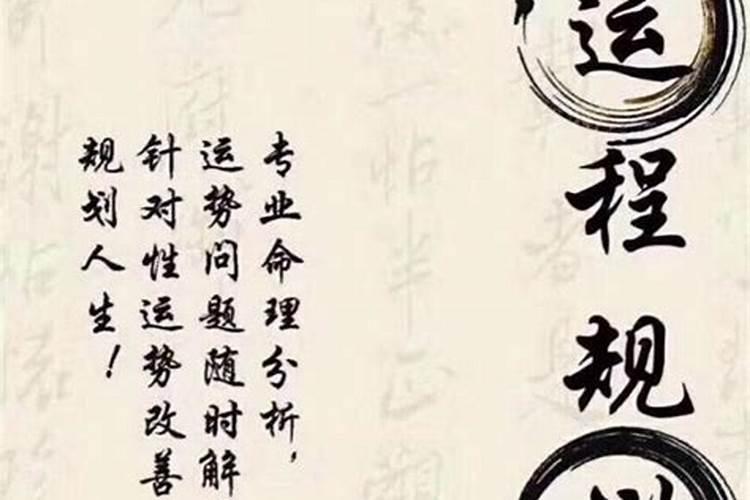 运程规
专业命理分析，
运势问题随时解
针对性运势改善
规划人生！